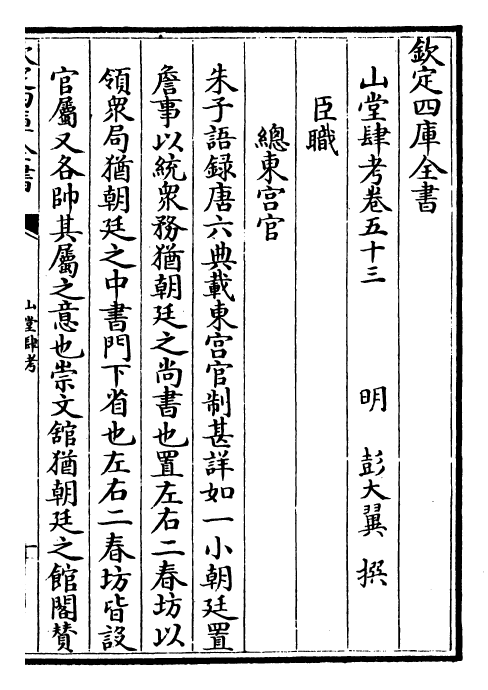 欽定四庫全書
山堂肆考卷五十三　明　彭大翼　撰
臣職
總東宮官
朱子語録唐六典載東宮官制甚詳如一小朝廷置
詹事以統衆務猶朝廷之尚書也置左右二春坊以
領衆局猶朝廷之中書門下省也左右二春坊皆設
官屬又各帥其屬之意也崇文舘猶朝廷之館閣賛
欽定四庫全書
山堂肆考